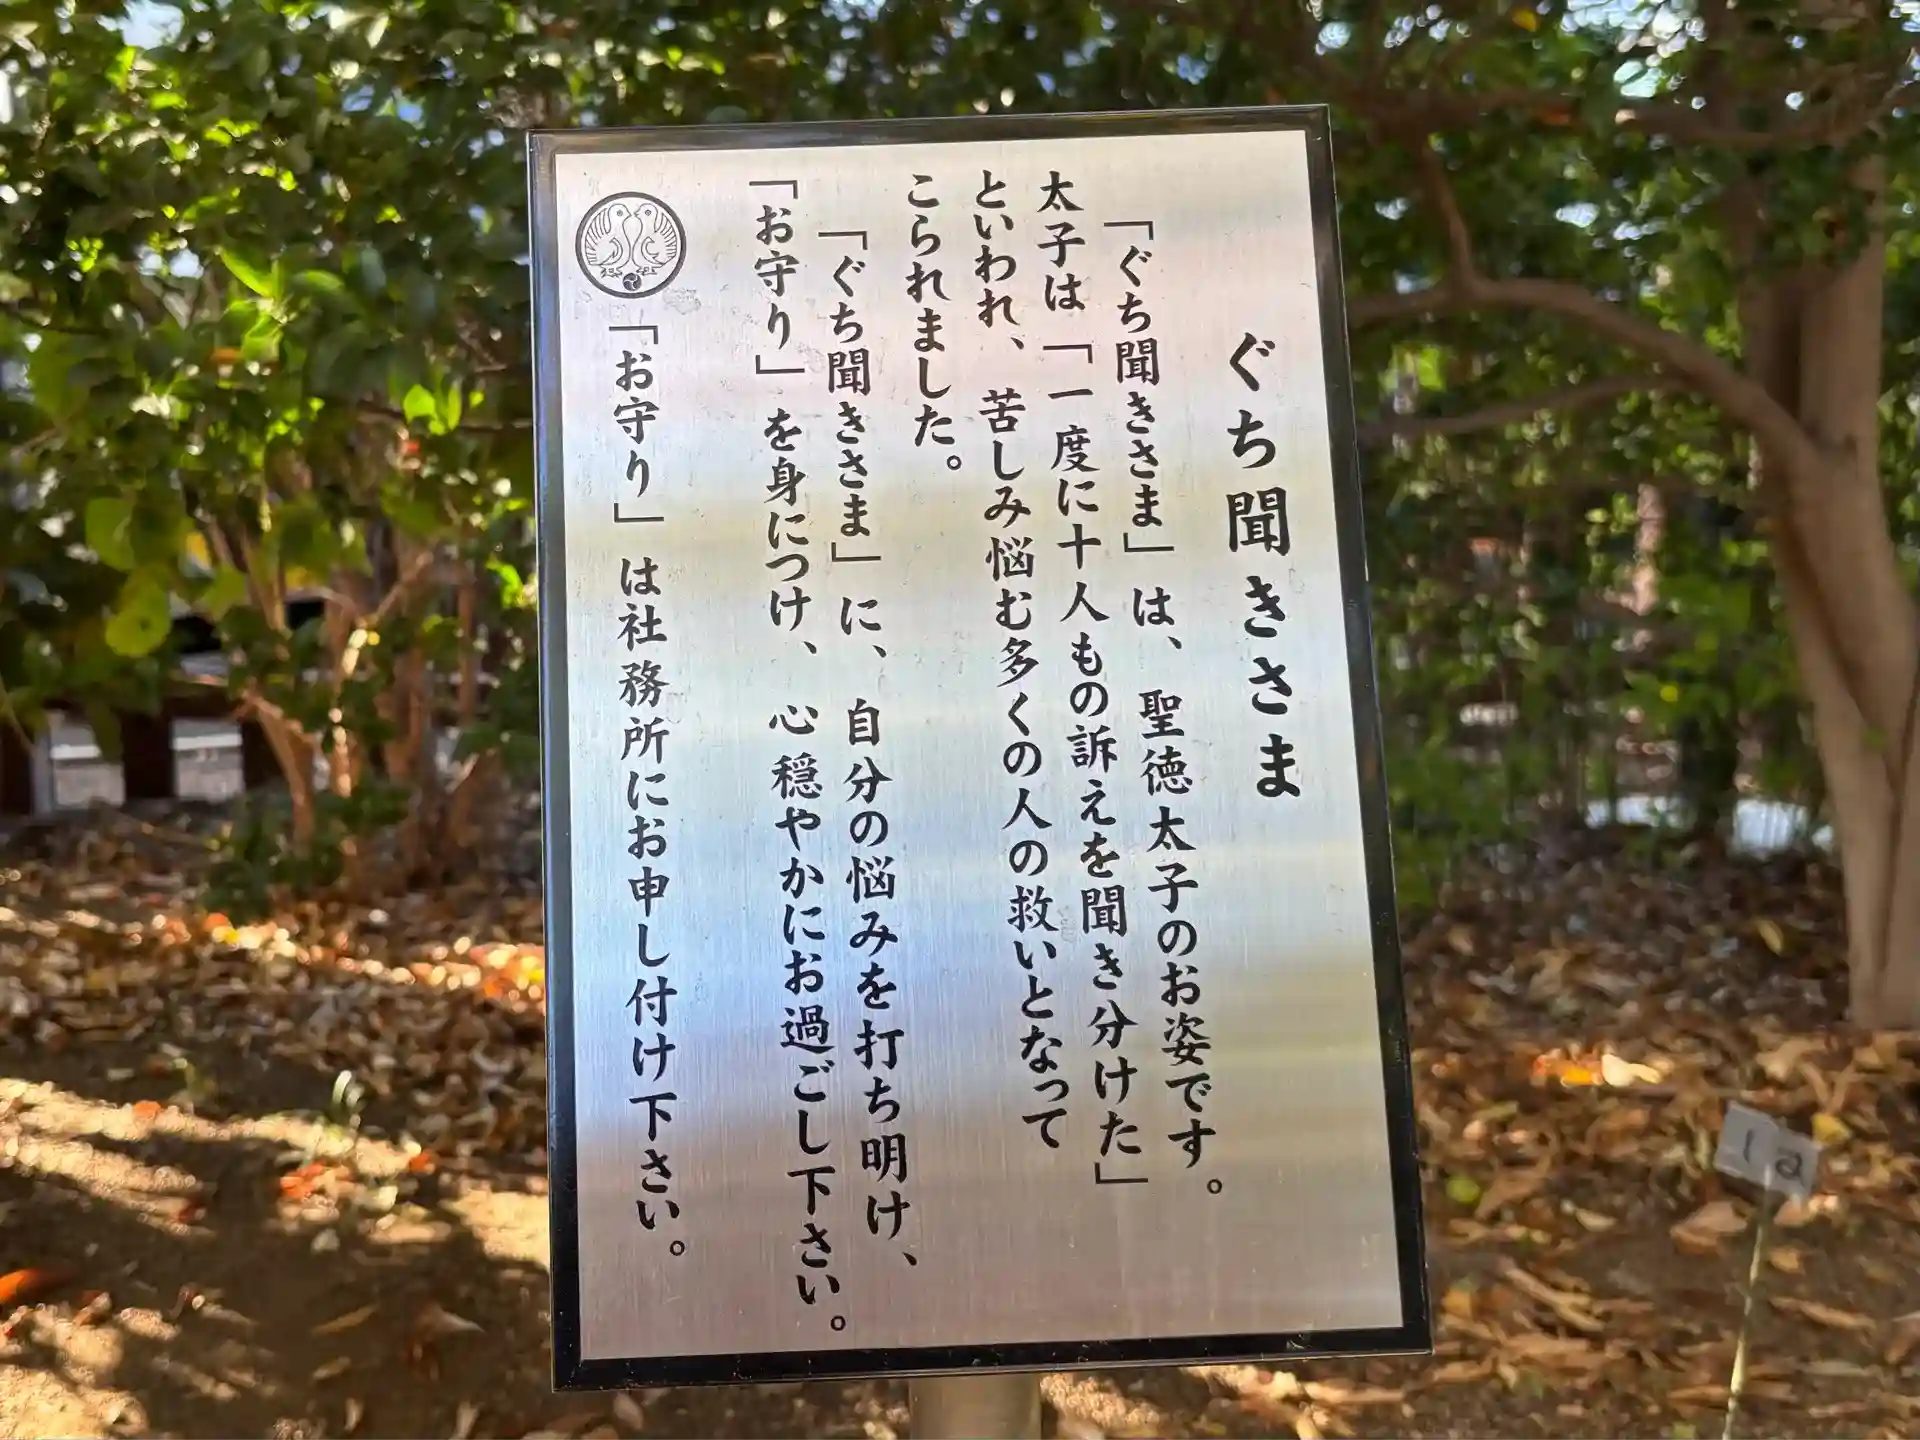 ぐち聞きさま
「ぐち聞きさま」は、聖徳太子のお姿です。
太子は「一度に十人もの訴えを聞き分けた」
といわれ、苦しみ悩む多くの人の救いとなって
こられました。
「ぐち聞きさま」に、自分の悩みを打ち明け、
「お守り」を身につけ、心穏やかにお過ごし下さい。
「お守り」は社務所にお申し付け下さい。
1a